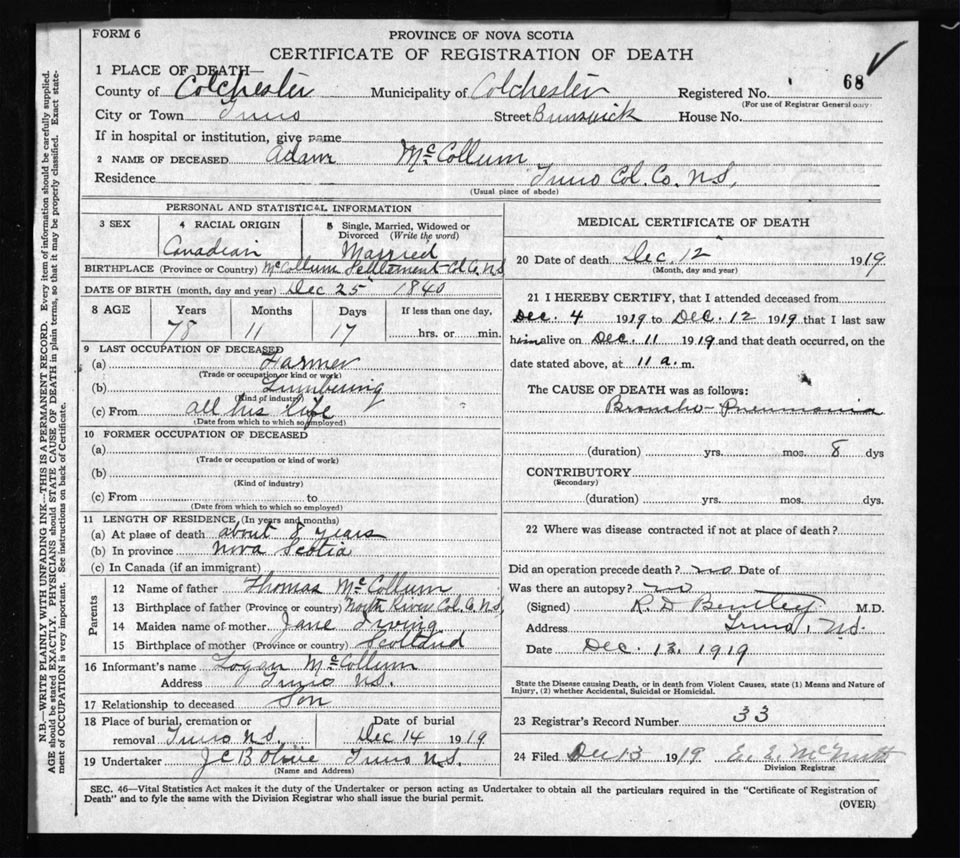 FORM 6
PROVINCE OF NOVA SCOTIA
CERTIFICATE OF REGISTRATION OF DEATH
1 PLACE OF DEATH—
County of Colchester Municipality of Colchester Registered No. 68
(For use of Registrar General only)
City or Town Truro Street Brunswick House No.
If in hospital or institution, give name
2 NAME OF DECEASED Adam McCollum
Residence Truro Col. Co. N.S.
(Usual place of abode)
PERSONAL AND STATISTICAL INFORMATION
3 SEX 4 RACIAL ORIGIN 5 Single, Married, Widowed or Divorced (Write the word)
Canadian Married
BIRTHPLACE (Province or Country) McCollum Settlement Col. Co. N.S.
DATE OF BIRTH (month, day and year) Dec 25 1840
8 AGE Years Months Days If less than one day,
78 11 17 hrs. or min.
9 LAST OCCUPATION OF DECEASED
(a) Farmer
(Trade or occupation or kind of work)
(b) Lumbering
(Kind of industry)
(c) From all his life
(Date from which to which so employed)
10 FORMER OCCUPATION OF DECEASED
(a)
(Trade or occupation or kind of work)
(b)
(Kind of industry)
(c) From to
(Date from which to which so employed)
11 LENGTH OF RESIDENCE (In years and months)
(a) At place of death about 8 years
(b) In province Nova Scotia
(c) In Canada (if an immigrant)
Parents
12 Name of father Thomas McCollum
13 Birthplace of father (Province or country) North River Col. Co. N.S.
14 Maiden name of mother Jane Irving
15 Birthplace of mother (Province or country) Scotland
16 Informant's name Logan McCollum
Address Truro N.S.
17 Relationship to deceased Son
18 Place of burial, cremation or removal Truro N.S. Date of burial Dec 14 1919
19 Undertaker J C B Olive Truro N.S.
(Name and Address)
MEDICAL CERTIFICATE OF DEATH
20 Date of death Dec. 12 1919
(Month, day and year)
21 I HEREBY CERTIFY, that I attended deceased from
Dec. 4 1919 to Dec. 12 1919 that I last saw
him alive on Dec. 11 1919 and that death occurred, on the
date stated above, at 11 a. m.
The CAUSE OF DEATH was as follows:
Broncho-Pneumonia
(duration) yrs. mos. 8 dys
CONTRIBUTORY
(Secondary)
(duration) yrs. mos. dys.
22 Where was disease contracted if not at place of death?
Did an operation precede death? no Date of
Was there an autopsy? no
(Signed) R. D. Bentley M.D.
Address Truro, N.S.
Date Dec. 13. 1919
State the Disease causing Death, or in death from Violent Causes, state (1) Means and Nature of
Injury, (2) whether Accidental, Suicidal or Homicidal.
23 Registrar's Record Number 33
24 Filed Dec 13 1919 E. E. McNutt
Division Registrar
SEC. 46—Vital Statistics Act makes it the duty of the Undertaker or person acting as Undertaker to obtain all the particulars required in the "Certificate of Registration of
Death" and to fyle the same with the Division Registrar who shall issue the burial permit.
(OVER)
N.B.—WRITE PLAINLY WITH UNFADING INK—THIS IS A PERMANENT RECORD. Every item of information should be carefully supplied.
AGE should be stated EXACTLY. PHYSICIANS should STATE CAUSE OF DEATH in plain terms, so that it may be properly classified. Exact state-
ment of OCCUPATION is very important. See instructions on back of Certificate.